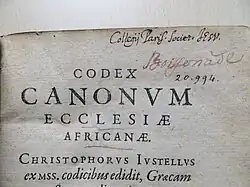 Collegij Paris. Societ. Jesu.
Boissonade
20.994.
CODEX
CANONVM
ECCLESIÆ
AFRICANÆ.
CHRISTOPHORVS IVSTELLVS
ex MSS. codicibus edidit, Græcam